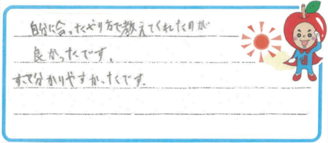 自分に合ったやり方で教えてくれたのが
良かったです。
すごく分かりやすかったです。